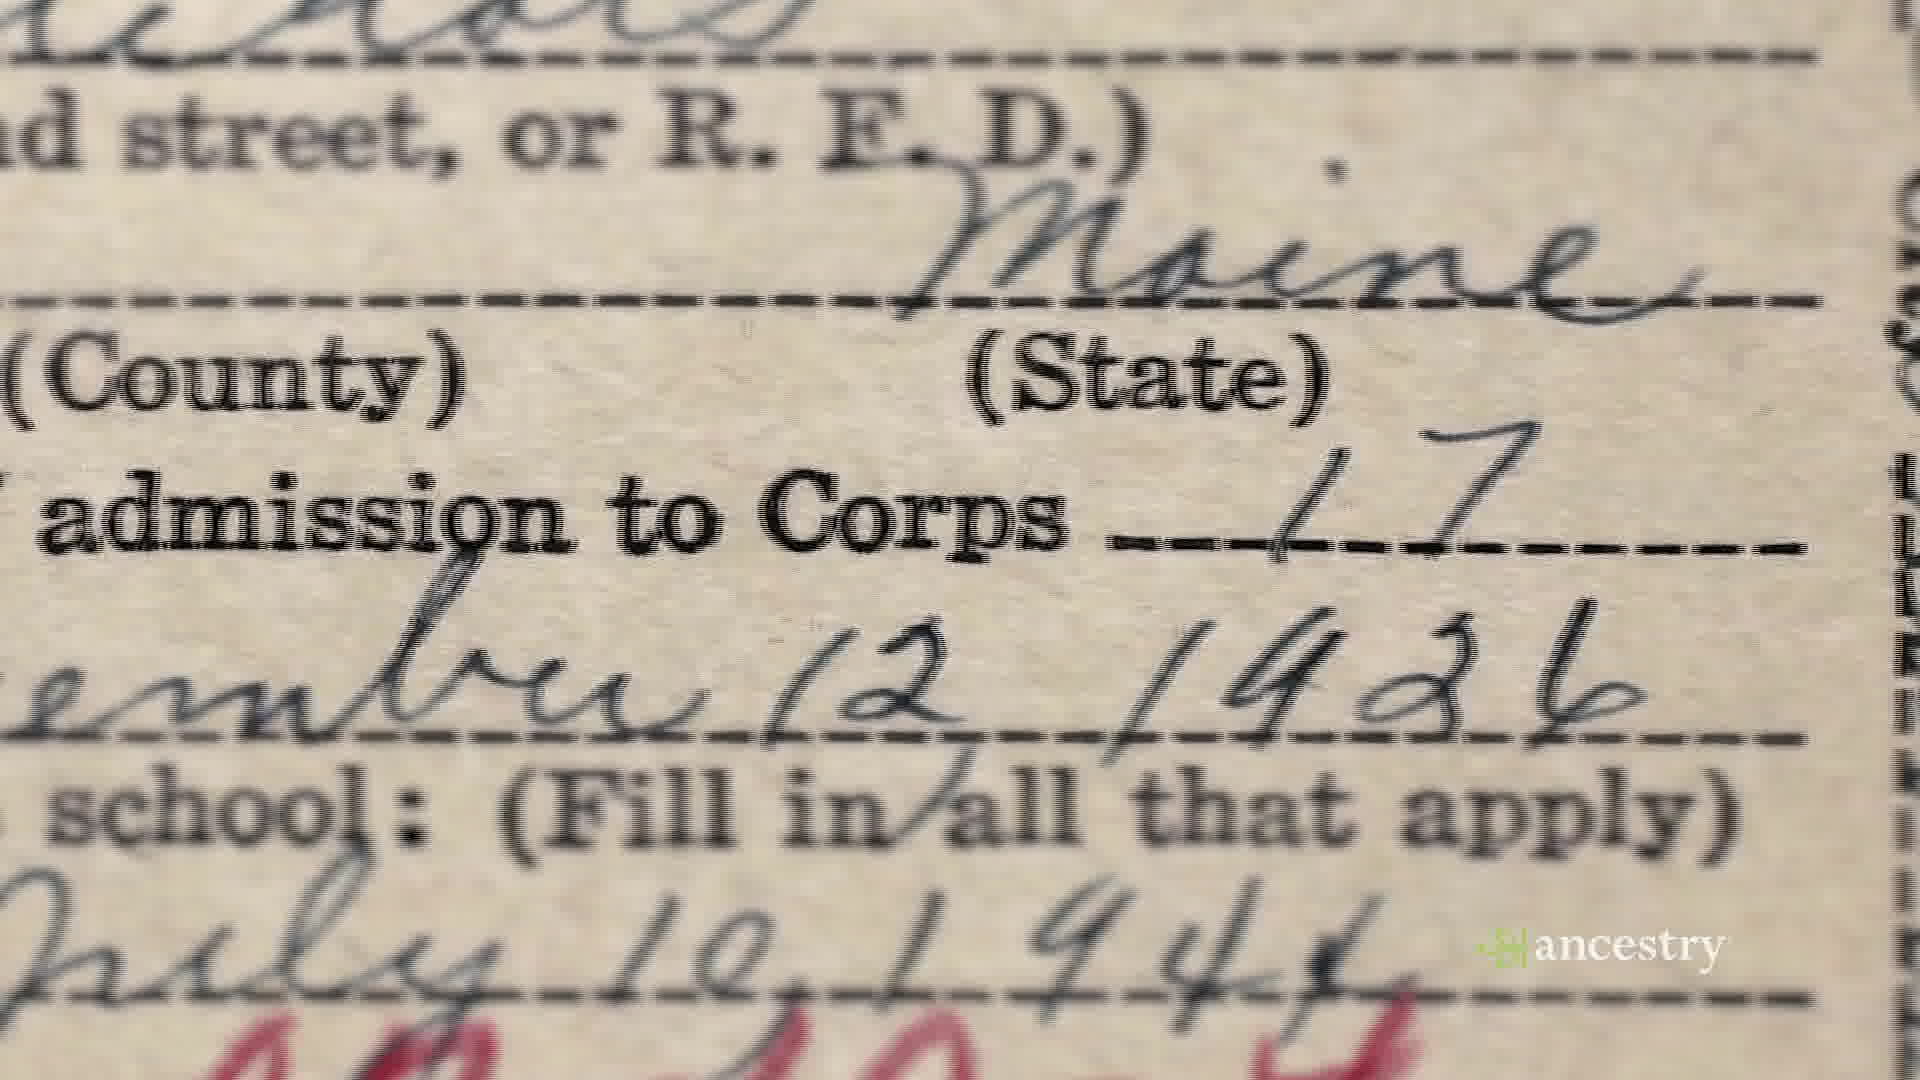 nd street, or R. F. D.)
Maine
(County) (State)
admission to Corps 17
ember 12, 1926
school: (Fill in all that apply)
July 10, 1944
ancestry